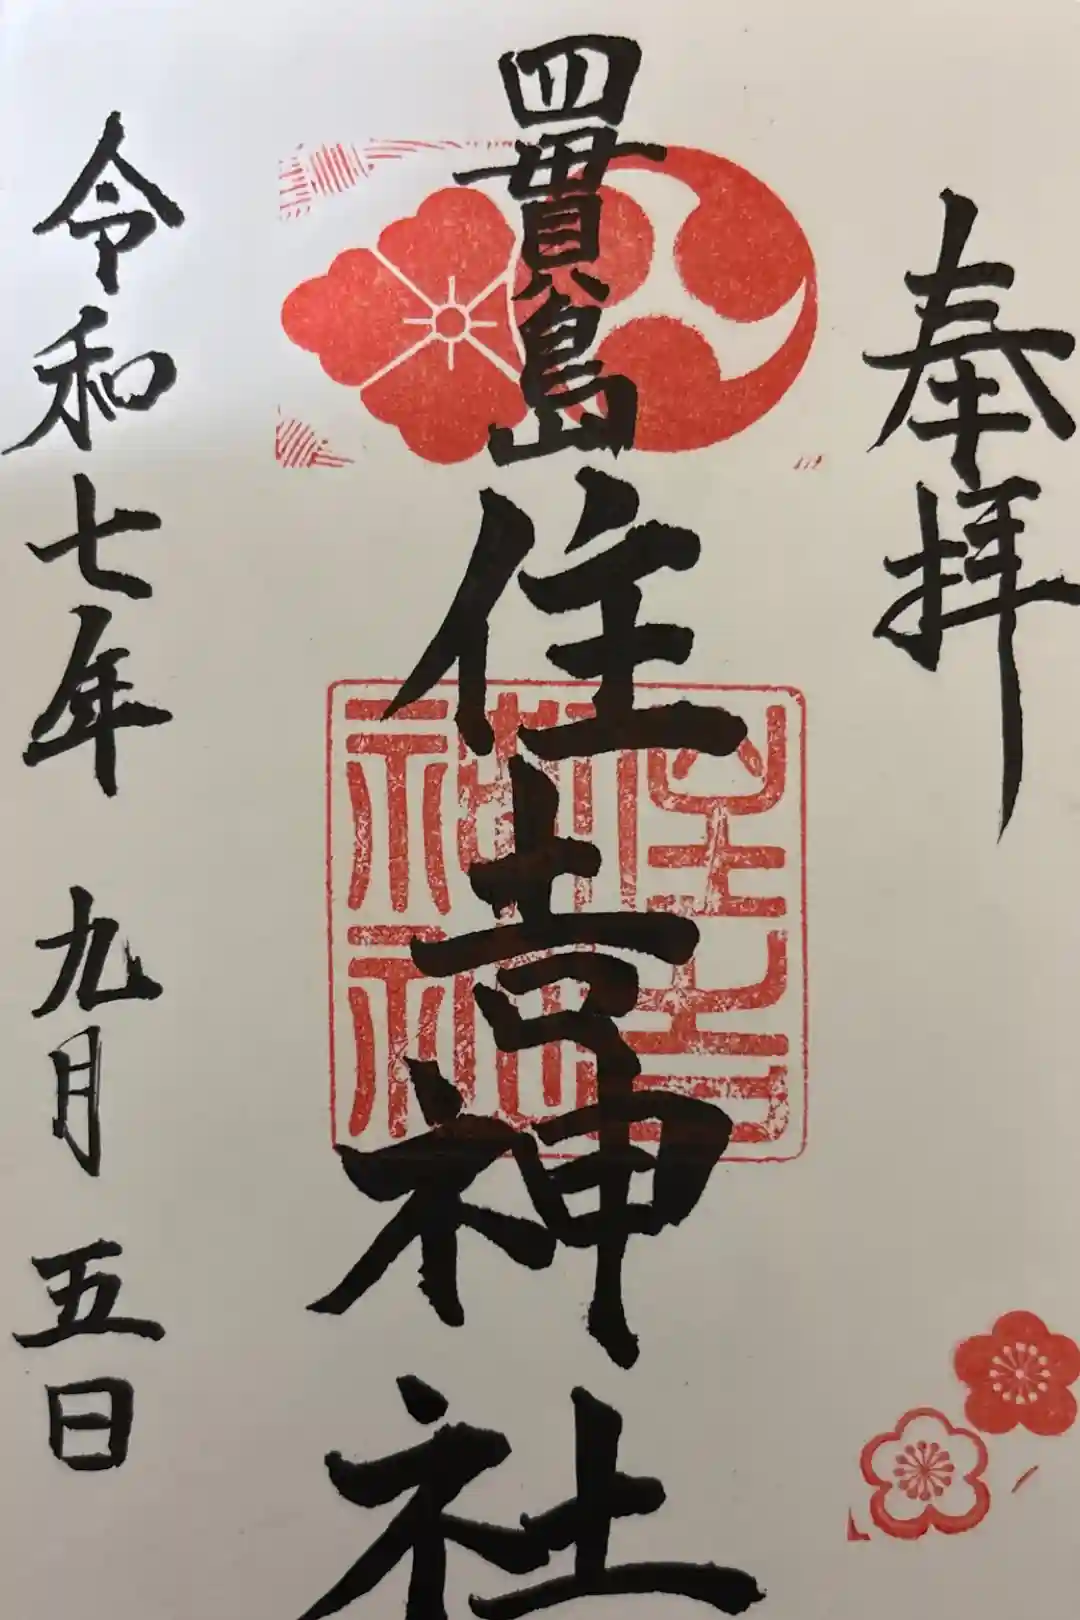 奉拝
四貫島住吉神社
住吉神社
令和七年 九月 五日